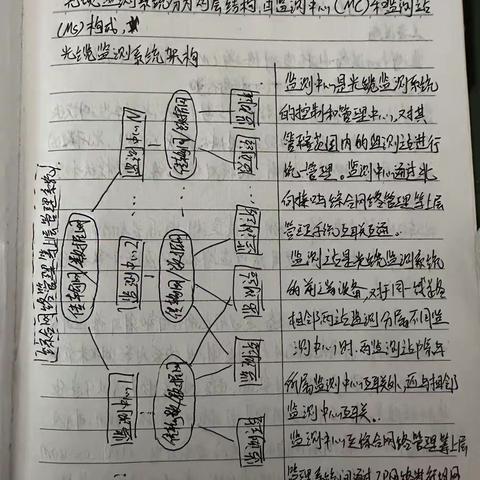 光缆监测系统分为两层结构,由监测中心(MC)和监测站
(MS)构成,
光缆监测系统架构
综合网络管理等上层管理系统
传输网/数据网
监测中心N
监测中心2
监测中心1
传输网/数据网
传输网/数据网
传输网/数据网
监测站
监测站
监测站
监测站
监测站
监测站
监测中心是光缆监测系统
的控制和管理中心,对其
管辖范围内的监测站进行
统一管理。监测中心通过北
向接口与综合网络管理等上层
管理系统互联互通。
监测站是光缆监测系统
的前端设备,对于同一线路
相邻两站监测分属不同监
测中心时,两监测站除与
所属监测中心互联外,还与相邻
监测中心互联。
监测中心至综合网络管理等上层
管理系统间通过IP网络